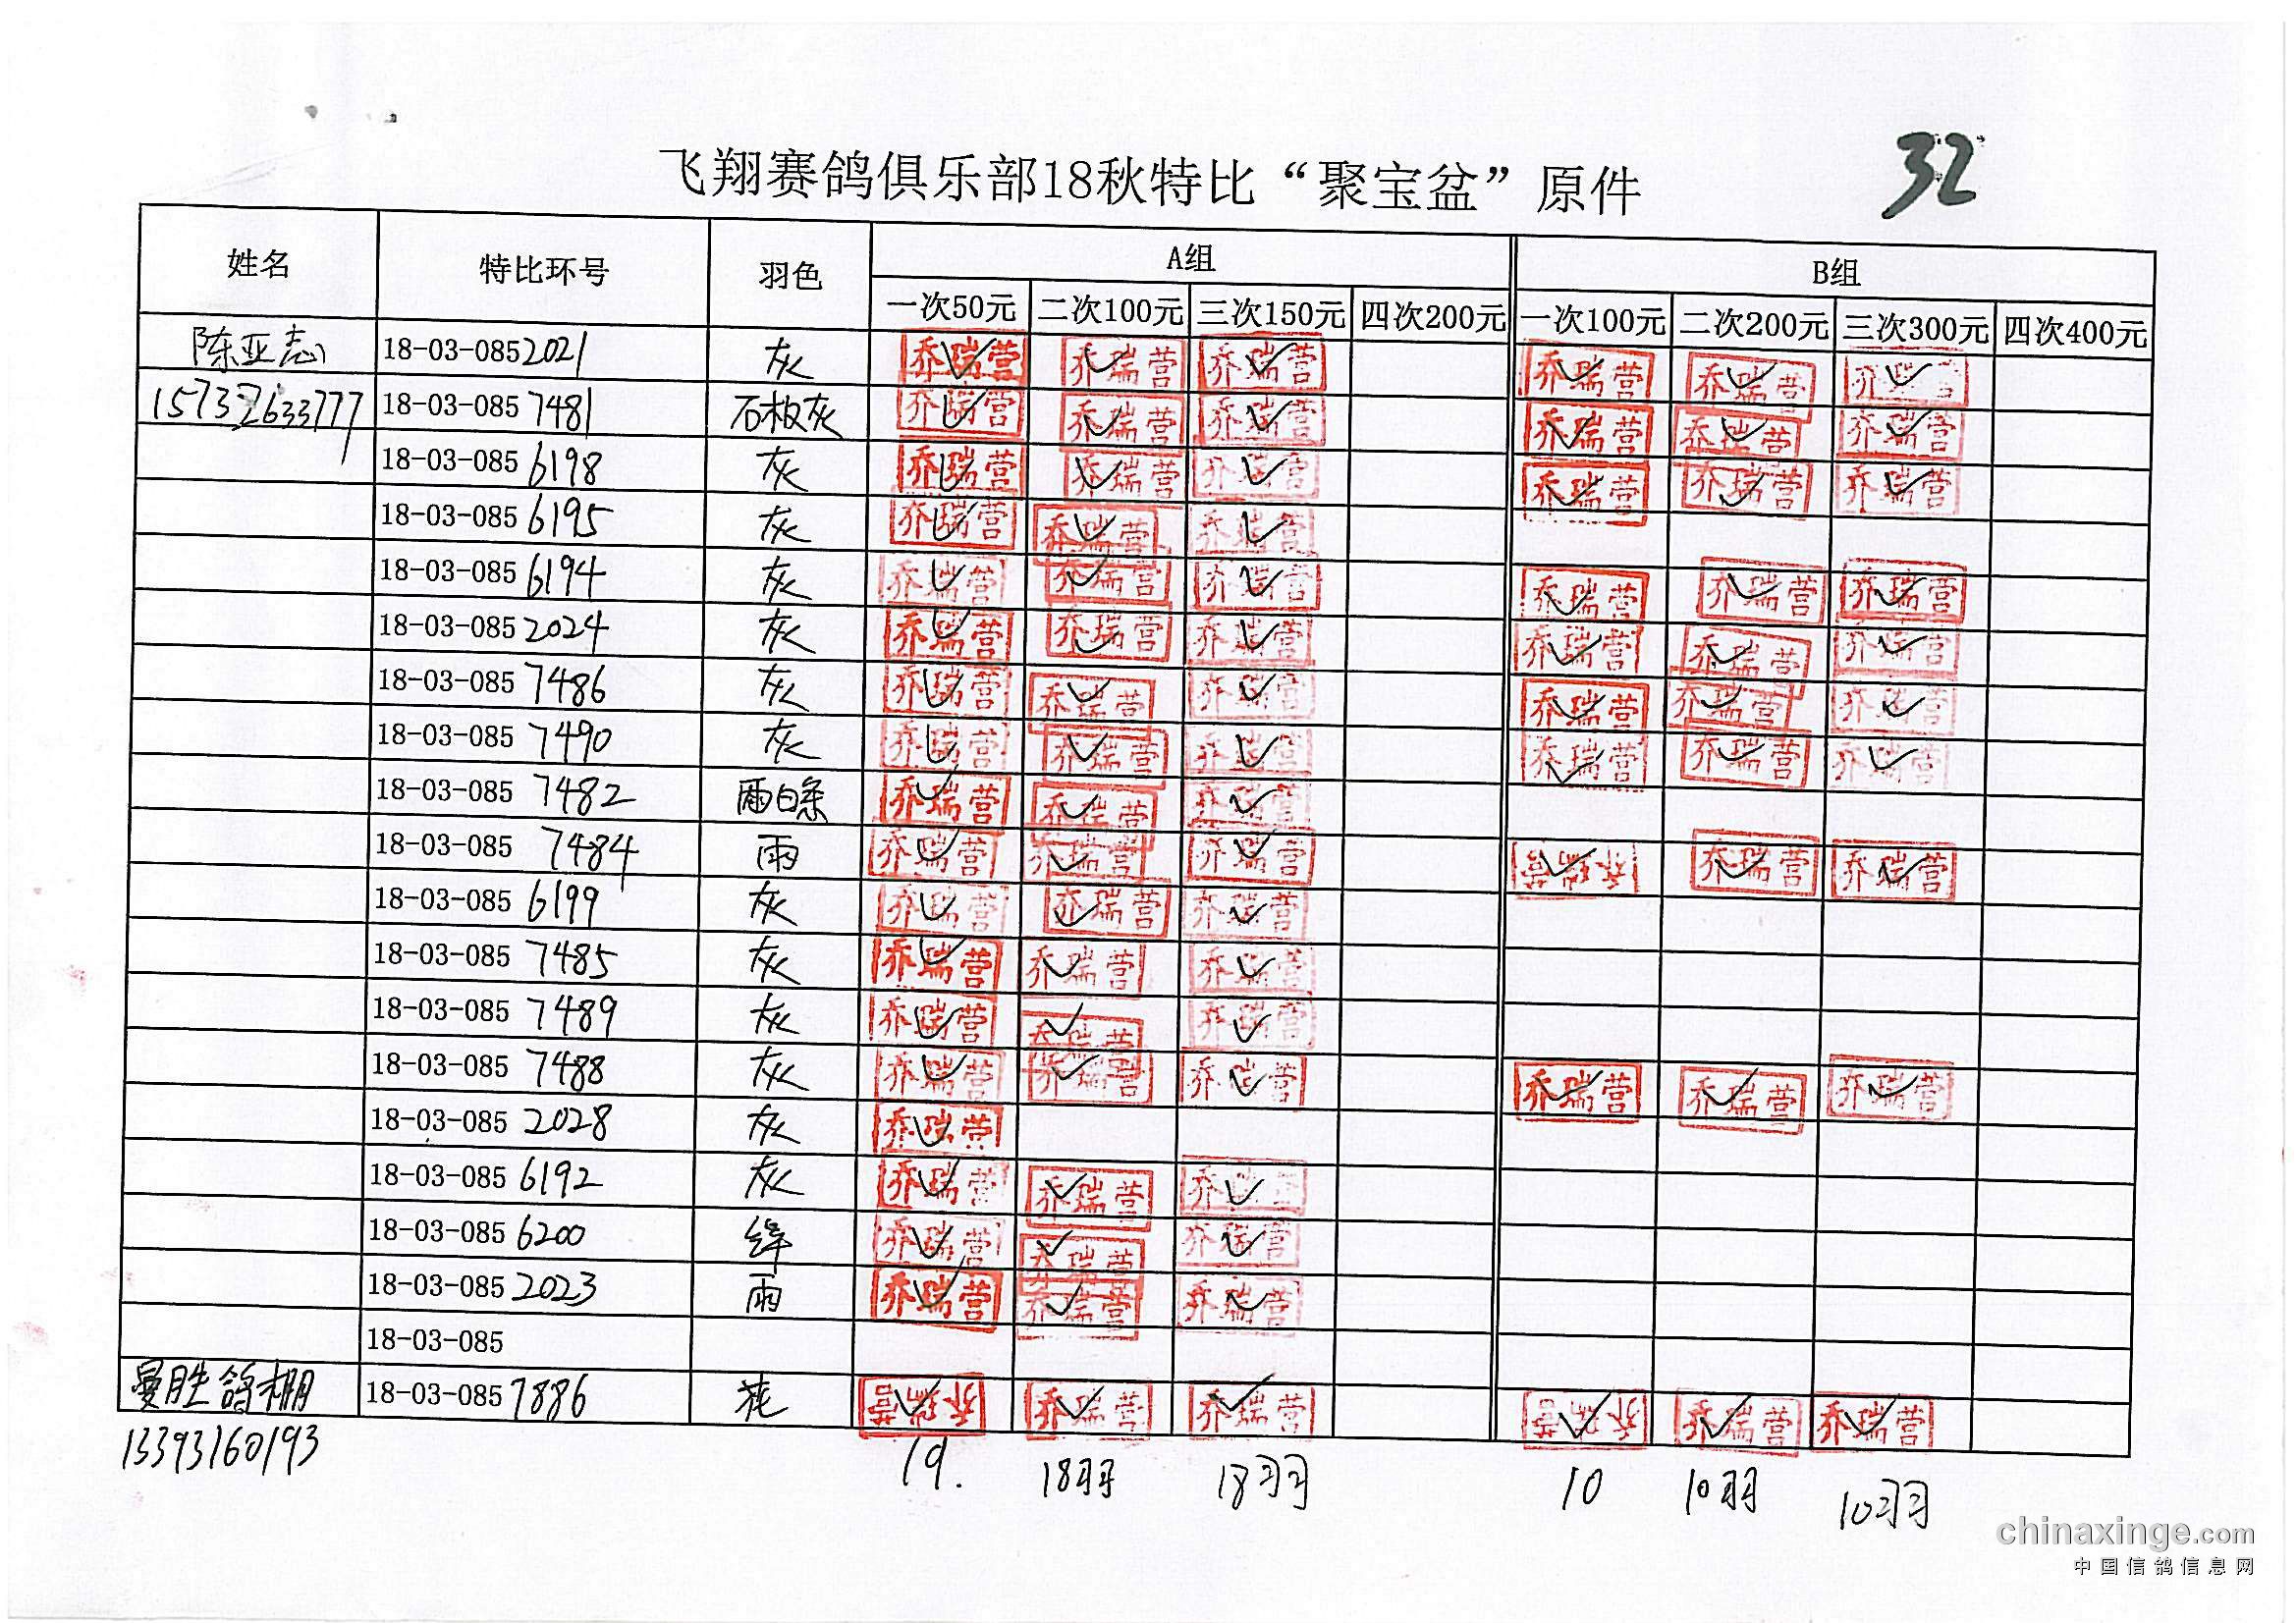 飞翔赛鸽俱乐部18秋特比“聚宝盆”原件
32
姓名 特比环号 羽色 A组 B组
一次50元 二次100元 三次150元 四次200元 一次100元 二次200元 三次300元 四次400元
陈亚志 18-03-085 2021 灰 乔瑞营 乔瑞营 乔瑞营 乔瑞营 乔瑞营 乔瑞营
15732633777 18-03-085 7481 石板灰 乔瑞营 乔瑞营 乔瑞营 乔瑞营 乔瑞营 乔瑞营
18-03-085 6198 灰 乔瑞营 乔瑞营 乔瑞营 乔瑞营 乔瑞营 乔瑞营
18-03-085 6195 灰 乔瑞营 乔瑞营 乔瑞营
18-03-085 6194 灰 乔瑞营 乔瑞营 乔瑞营 乔瑞营 乔瑞营 乔瑞营
18-03-085 2024 灰 乔瑞营 乔瑞营 乔瑞营 乔瑞营 乔瑞营 乔瑞营
18-03-085 7486 灰 乔瑞营 乔瑞营 乔瑞营 乔瑞营 乔瑞营 乔瑞营
18-03-085 7490 灰 乔瑞营 乔瑞营 乔瑞营 乔瑞营 乔瑞营 乔瑞营
18-03-085 7482 雨白条 乔瑞营 乔瑞营 乔瑞营
18-03-085 7484 雨 乔瑞营 乔瑞营 乔瑞营 乔瑞营 乔瑞营 乔瑞营
18-03-085 6199 灰 乔瑞营 乔瑞营 乔瑞营
18-03-085 7485 灰 乔瑞营 乔瑞营 乔瑞营
18-03-085 7489 灰 乔瑞营 乔瑞营 乔瑞营
18-03-085 7488 灰 乔瑞营 乔瑞营 乔瑞营 乔瑞营 乔瑞营 乔瑞营
18-03-085 2028 灰 乔瑞营
18-03-085 6192 灰 乔瑞营 乔瑞营 乔瑞营
18-03-085 6200 绛 乔瑞营 乔瑞营 乔瑞营
18-03-085 2023 雨 乔瑞营 乔瑞营 乔瑞营
18-03-085
曼胜鸽棚 18-03-085 7886 花 乔瑞营 乔瑞营 乔瑞营 乔瑞营 乔瑞营 乔瑞营
13393160193
19. 18羽 18羽 10 10羽 10羽
chinaxinge.com
中国信鸽信息网